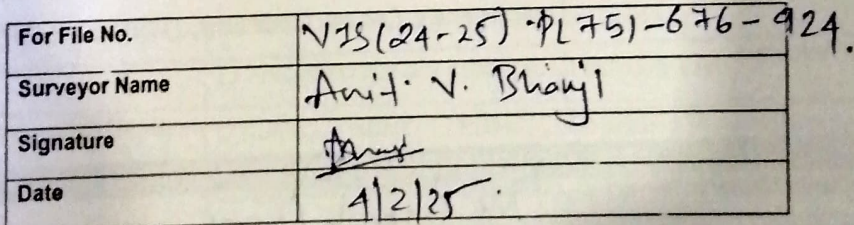 For File No. VIS(24-25)-PL751-676-924.
Surveyor Name Anit. V. Bhanji
Signature
Date 4/2/25.